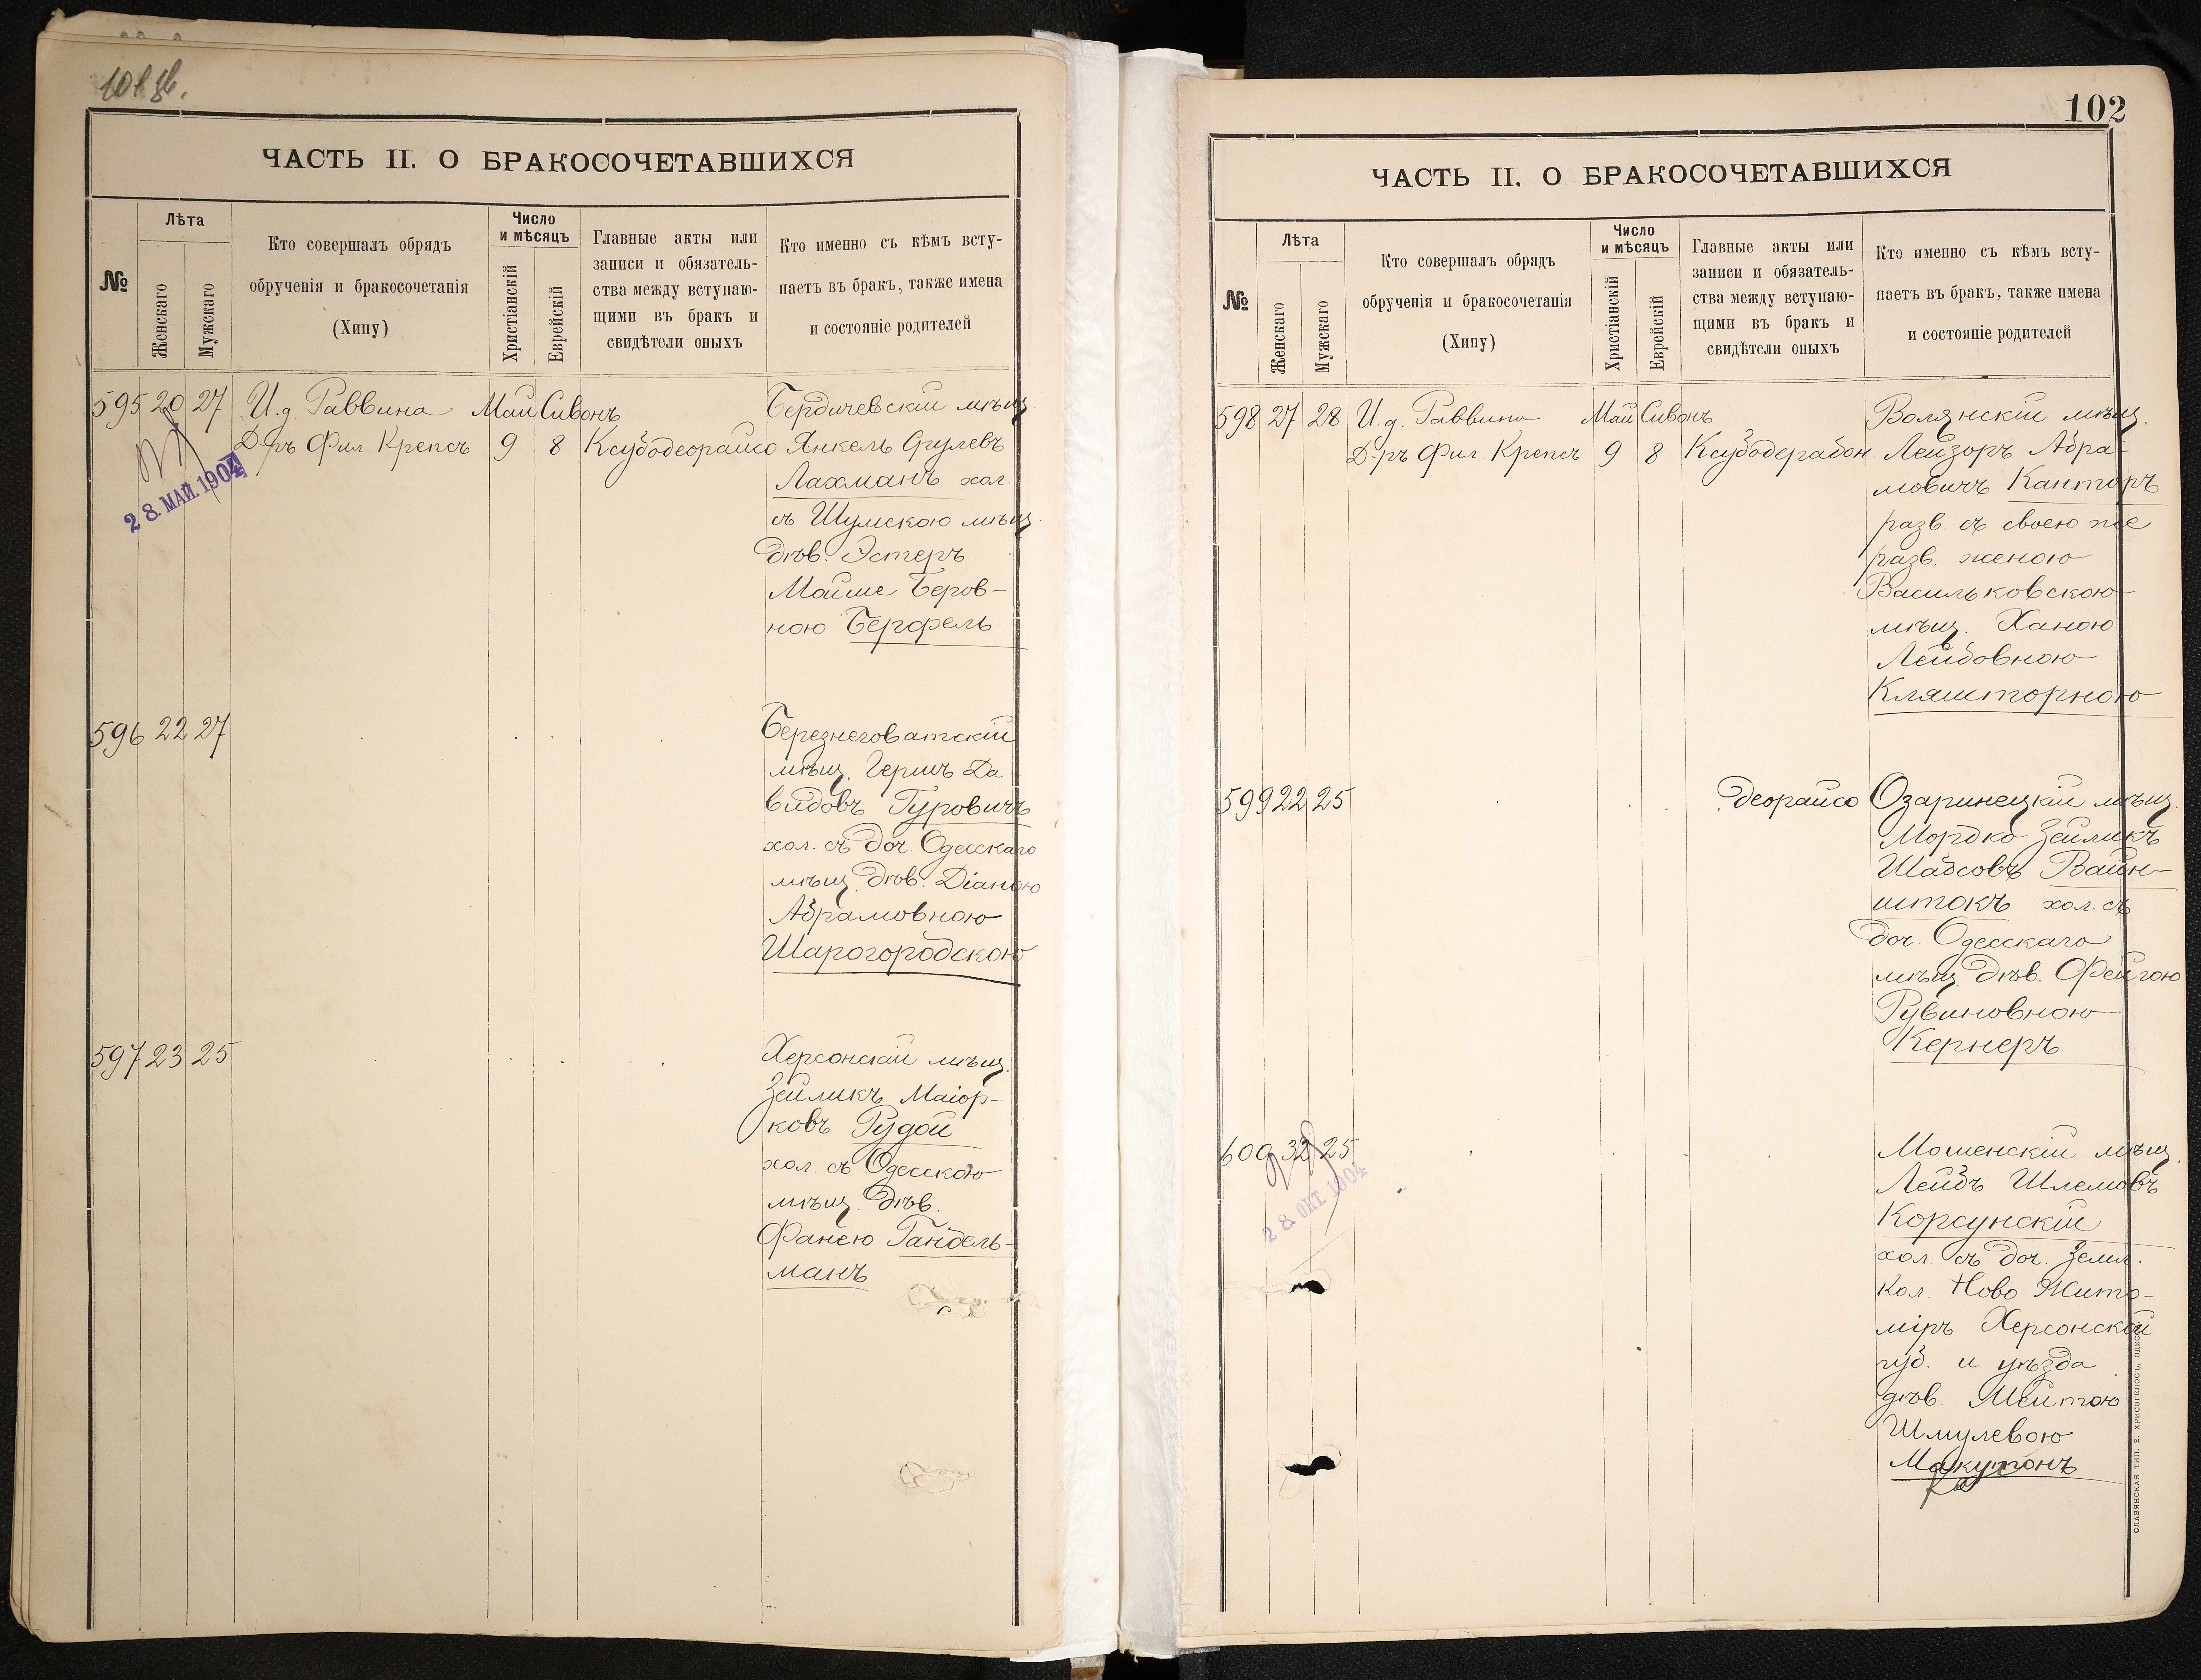 101 об.
ЧАСТЬ II. О БРАКОСОЧЕТАВШИХСЯ
№
Лѣта
Женскаго
Мужскаго
Кто совершалъ обрядъ
обрученія и бракосочетанія
(Хипу)
Число
и мѣсяцъ
Христіанскій
Еврейскій
Главные акты или
записи и обязатель-
ства между вступаю-
щими въ бракъ и
свидѣтели оныхъ
Кто именно съ кѣмъ всту-
паетъ въ бракъ, также имена
и состояніе родителей
595 20 27 И.д. Раввина Май Сивонъ Бердичевскій мѣщ.
Д-ръ Фил. Крепсъ 9 8 Ксубодеорайсо Янкель Срулевъ
28. МАЙ. 1904
Лахманъ хол.
съ Шумскою мѣщ.
дѣв. Эстеръ
Мойше Беров-
ною Берфель
596 22 27 Березнеговатскій
мѣщ. Гершъ Да-
видовъ Гуровичъ
хол. съ доч. Одесскаго
мѣщ. дѣв. Діаною
Абрамовною
Шарогородскою
597 23 25 Херсонскій мѣщ.
Зейликъ Маіор-
ковъ Рудой
хол. съ Одесскою
мѣщ. дѣв.
Фанею Гандель-
манъ
102
ЧАСТЬ II. О БРАКОСОЧЕТАВШИХСЯ
№
Лѣта
Женскаго
Мужскаго
Кто совершалъ обрядъ
обрученія и бракосочетанія
(Хипу)
Число
и мѣсяцъ
Христіанскій
Еврейскій
Главные акты или
записи и обязатель-
ства между вступаю-
щими въ бракъ и
свидѣтели оныхъ
Кто именно съ кѣмъ всту-
паетъ въ бракъ, также имена
и состояніе родителей
598 27 28 И.д. Раввина Май Сивонъ Волянскій мѣщ.
Д-ръ Фил. Крепсъ 9 8 Ксубодерабон Лейзоръ Абра-
мовичъ Канторъ
разв. съ своею же
разв. женою
Васильковскою
мѣщ. Ханою
Лейбовною
Кляшторною
599 22 25 деорайсо Озаринецкій мѣщ.
Мордко Зейликъ
Шабсовъ Вайн-
штокъ хол. съ
доч. Одесскаго
мѣщ. дѣв. Фейгою
Рувиновною
Кернеръ
600 32 25 Мошенскій мѣщ.
28. ОКТ. 1904
Лейбъ Шлемовъ
Корсунскій
хол. съ доч. земл.
кол. Ново Жито-
міръ Херсонской
губ. и уѣзда
дѣв. Мейтою
Шмулевою
Макутонъ
СЛАВЯНСКАЯ ТИП. Е. ХРИСОГЕЛОСЪ, ОДЕССА